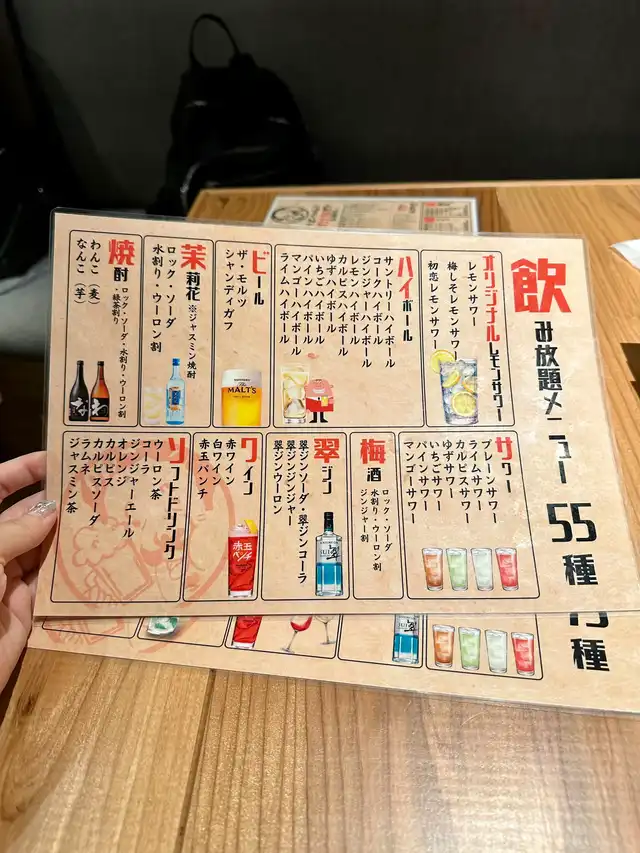 飲み放題メニュー 55種
オリジナルレモンサワー
レモンサワー
梅しそレモンサワー
初恋レモンサワー
ハイボール
サントリーハイボール
コークハイボール
ジンジャーハイボール
レモンハイボール
カルピスハイボール
ゆずハイボール
いちごハイボール
パインハイボール
マンゴーハイボール
ライムハイボール
ビール
ザ・モルツ
シャンディガフ
THE MALT'S
茉莉花 ※ジャスミン焼酎
ロック・ソーダ
水割り・ウーロン割
焼酎
ロック・ソーダ・水割り・ウーロン割
・緑茶割り
わんこ(麦)
なんこ(芋)
サワー
プレーンサワー
ライムサワー
カルピスサワー
ゆずサワー
いちごサワー
パインサワー
マンゴーサワー
梅酒
ロック・ソーダ
水割り・ウーロン割
ジンジャー割
翠ジン
翠ジンソーダ・翠ジンコーラ
翠ジンジンジャー
翠ジンウーロン
翠
ワイン
赤ワイン
白ワイン
赤玉パンチ
赤玉
パンチ
ソフトドリンク
ウーロン茶
コーラ
ジンジャーエール
オレンジ
カルピス
カルピスソーダ
ラムネ
ジャスミン茶
種